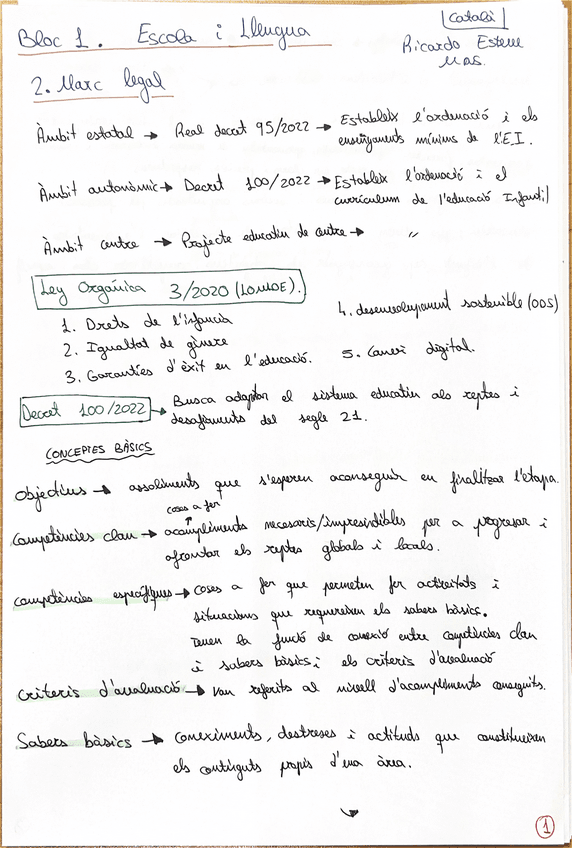 Català
Bloc 1. Escola i Llengua
Ricardo Esteve
MAS.
2. Marc legal
Àmbit estatal → Real decret 95/2022 → Estableix l'ordenació i els
ensenyaments mínims de l'EI.
Àmbit autonòmic → Decret 100/2022 → Estableix l'ordenació i el
currículum de l'educació Infantil
Àmbit centre → Projecte educatiu de centre → "
Ley Orgánica 3/2020 (LOMLOE).
1. Drets de l'infancia
2. Igualtat de gènere
3. Garanties d'èxit en l'educació.
4. desenvolupament sostenible (ODS)
5. Canvi digital.
Decret 100/2022 → Busca adaptar el sistema educatiu als reptes i
desafiaments del segle 21.
CONCEPTES BÀSICS
Objectius → assoliments que s'esperen aconseguir en finalitzar l'etapa.
coses a fer
Competències clau → acompliments necesaris/impresindibles per a progresar i
afrontar els reptes globals i locals.
competències específiques → coses a fer que permeten fer activitats i
situacions que requereixen els sabers bàsics.
Tenen la funció de conexió entre competències clau
i sabers bàsics i els criteris d'avaluació
Criteris d'avaluació → van referits al nivell d'acompliments conseguits.
Sabers bàsics → coneximents, destreses i actituds que constitueixen
els continguts propis d'una àrea.
1